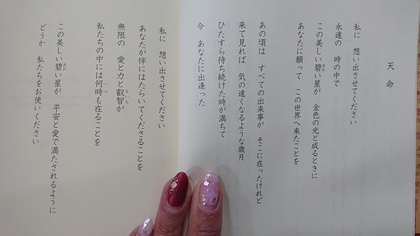 天命
私に 想い出させてください
永遠の 時の中で
この美しい碧い星が 金色の光と成るときに
あなたに願って この世界へ来たことを
あの頃は すべての出来事が そこに在ったけれど
来て見れば 気の遠くなるような歳月
ひたすら待ち続けた時が満ちて
今 あなたに出逢った
私に 想い出させてください
あなたが伴にはたらいてくださることを
無限の 愛と力と叡智が
私たちの中には何時も在ることを
この美しい碧い星が 平安と愛で満たされるように
どうか 私たちをお使いください